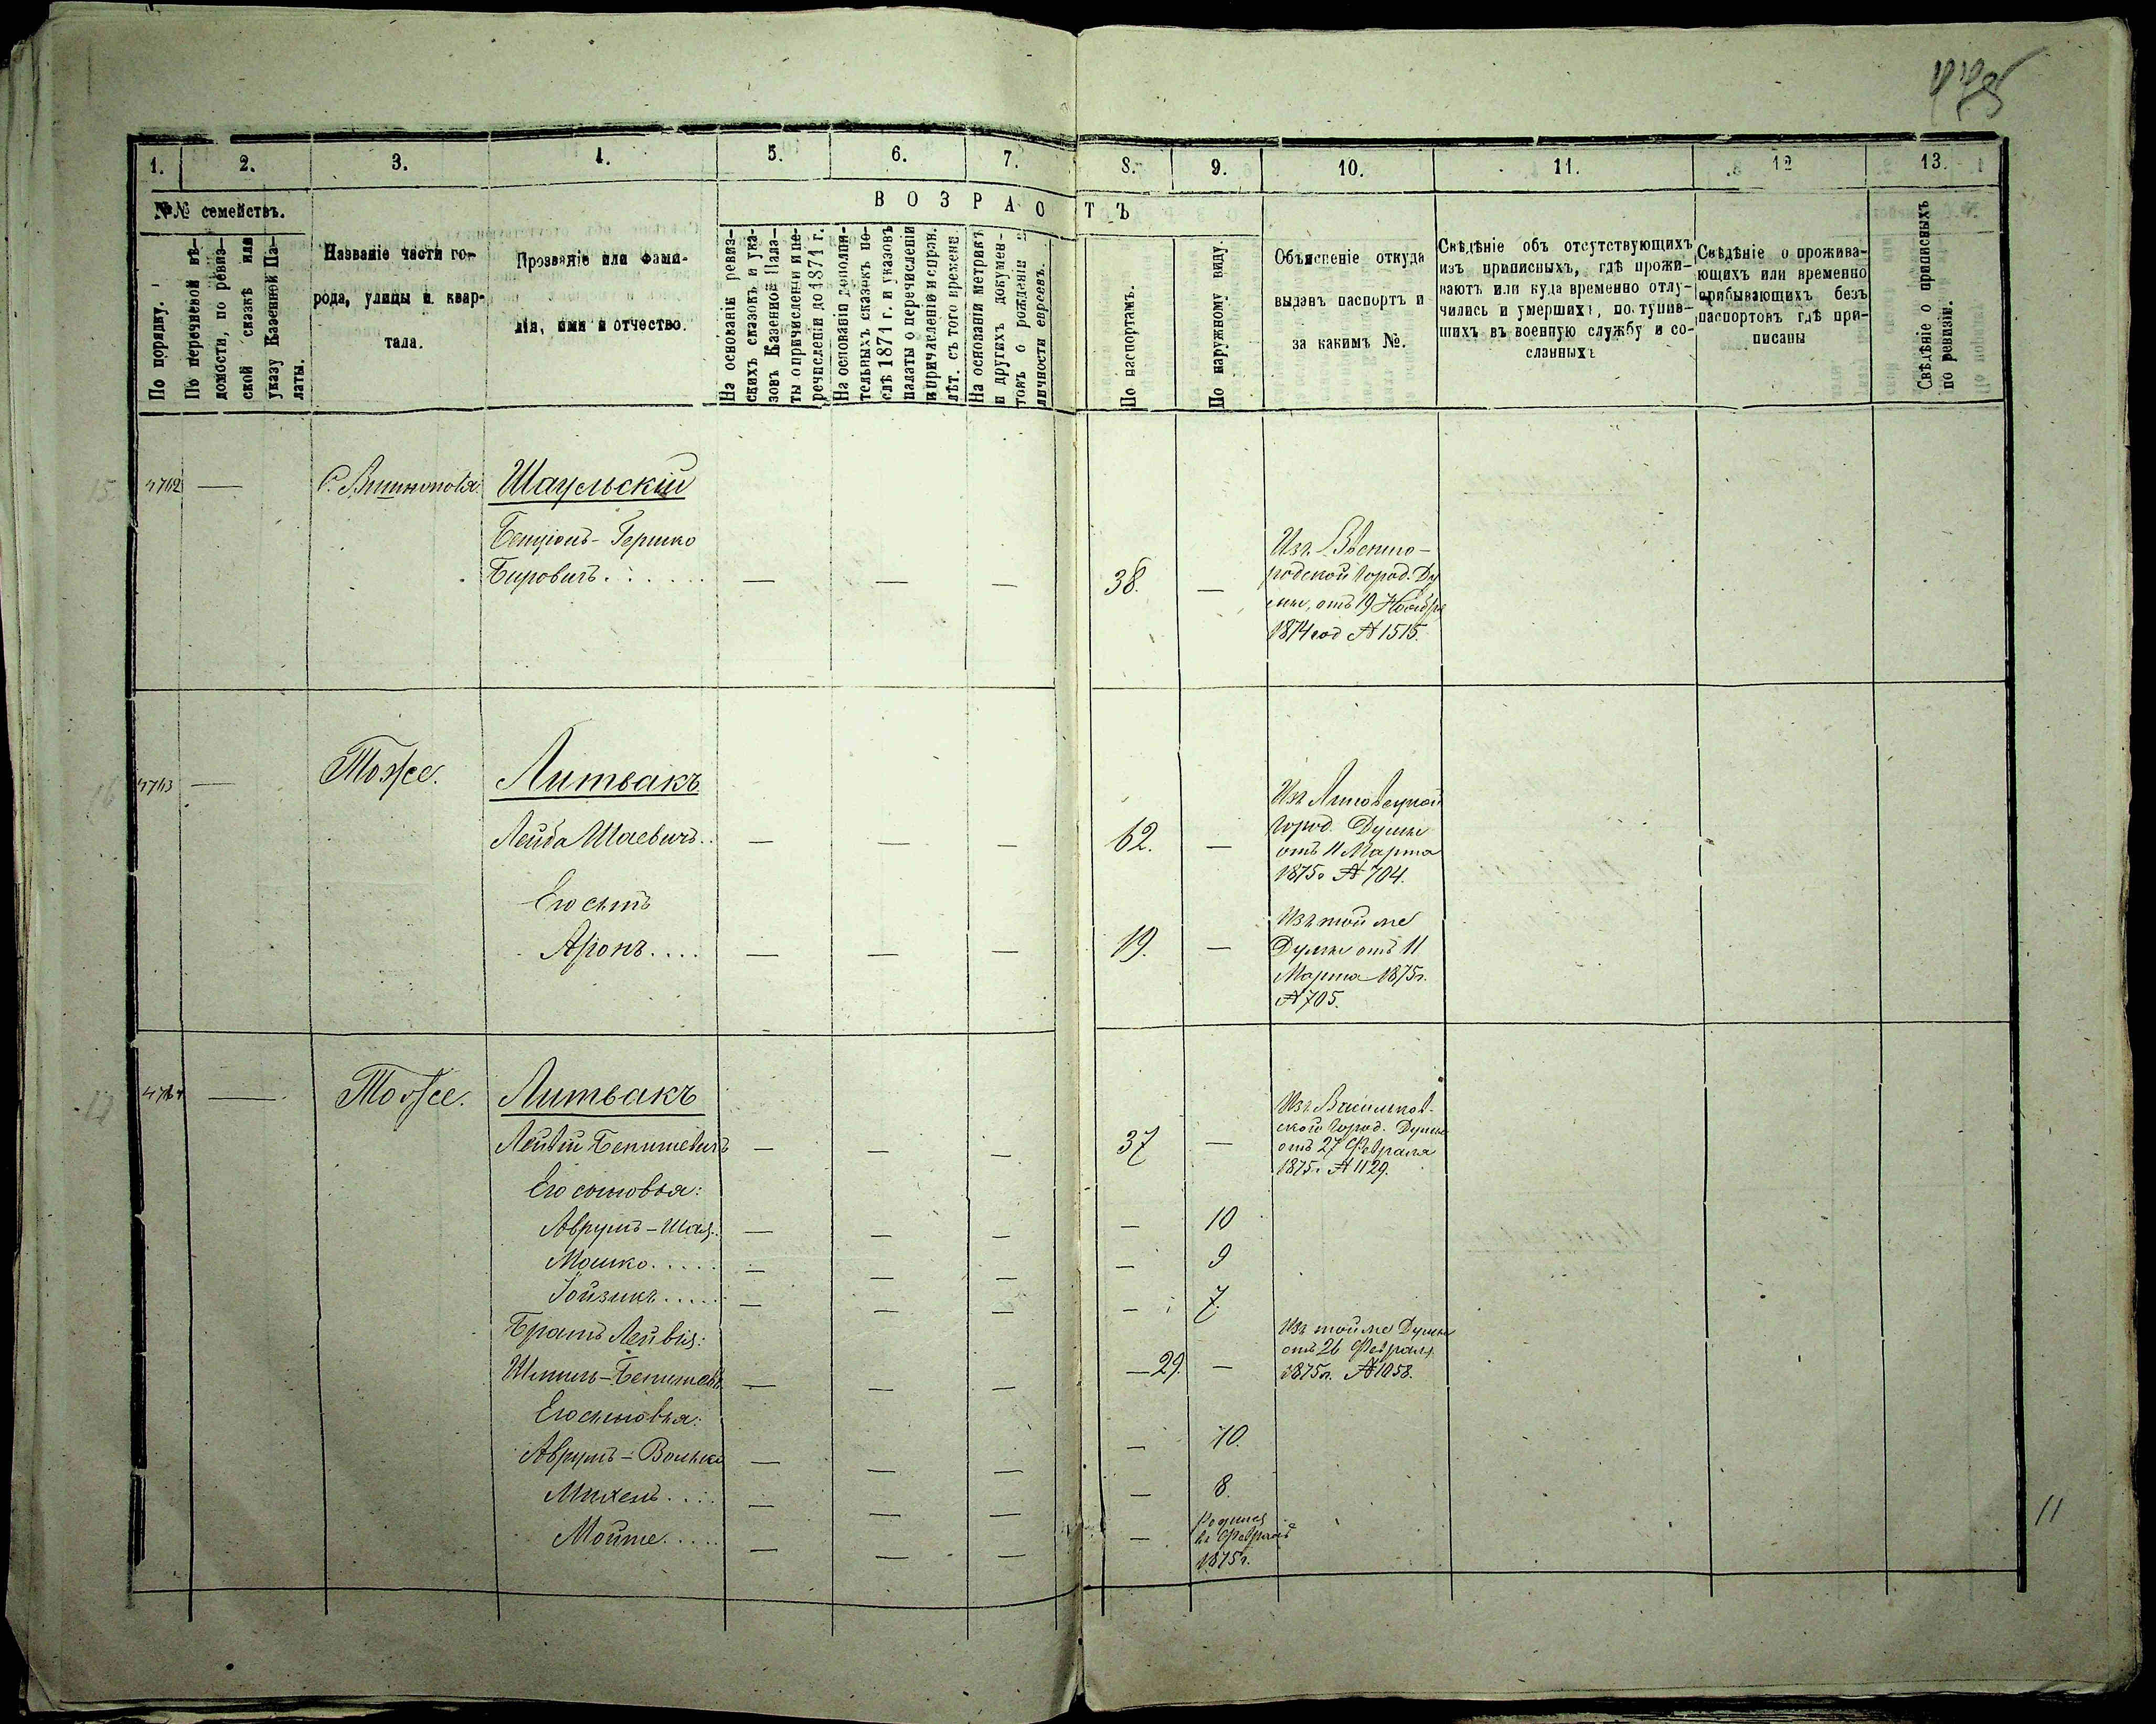 1. 2. 3. 4. 5. 6. 7. 8. 9. 10. 11. 12 13.
№№ семействъ.
По порядку.
По перечневой вѣ-
домости, по ревиз-
ской сказкѣ или
указу Казенной Па-
латы.
Названіе части го-
рода, улицы и квар-
тала.
Прозваніе или фами-
лія, имя и отчество.
ВОЗРАСТЪ
На основаніи ревиз-
скихъ сказокъ и ука-
зовъ Казенной Пала-
ты о причисленіи и пе-
речисленіи до 1871 г.
На основаніи дополни-
тельныхъ сказокъ по-
слѣ 1871 г. и указовъ
палаты о перечисленіи
и причисленію и справ.
лѣт. съ того времени.
На основаніи метрикъ
и другихъ докумен-
токъ о рожденіи и
личности евреевъ.
По паспортамъ.
По наружному виду.
Объясненіе откуда
выданъ паспортъ и
за какимъ №.
Свѣдѣніе объ отсутствующихъ
изъ приписныхъ, гдѣ прожи-
ваютъ или куда временно отлу-
чились и умершихъ, поступив-
шихъ въ военную службу и со-
сланныхъ
Свѣдѣніе о прожива-
ющихъ или временно
прибывающихъ безъ
паспортовъ гдѣ при-
писаны
Свѣдѣніе о приписныхъ
по ревизіи.
15 4762 — Шаульскій
Бенціонъ-Гершко
Бировичъ. — — — 38. —
Изъ Звениго-
родской Город. Ду
мы, отъ 19 Ноября
1874 год № 1515.
16 4763 — Тоже. Литвакъ
Лейба Шаевичъ.. — — — 62. —
Изъ Липовецкой
Город. Думы
отъ 11 Марта
1875г № 704.
Его сынъ
Аронъ.... — — — 19. —
Изъ той же
Думы отъ 11
Марта 1875г.
№ 705.
17 4764 — Тоже. Литвакъ
Лейвій — — — 37 —
Изъ Васильков-
ской Город. Думы
отъ 27 Февраля
1875г. № 1129.
Его сыновья:
Аврумъ-Шая. — — — — 10
Мошко..... — — — — 9
Іойзикъ..... — — — — 7.
Братъ Лейвія:
— — — — 29. —
Изъ той же Думы
отъ 26 Февраля
1875г. № 1058.
Его сыновья:
Аврумъ-Волько — — — — 10.
Михель.... — — — — 8.
— — — —
Родился
въ Февралѣ
1875г.
11